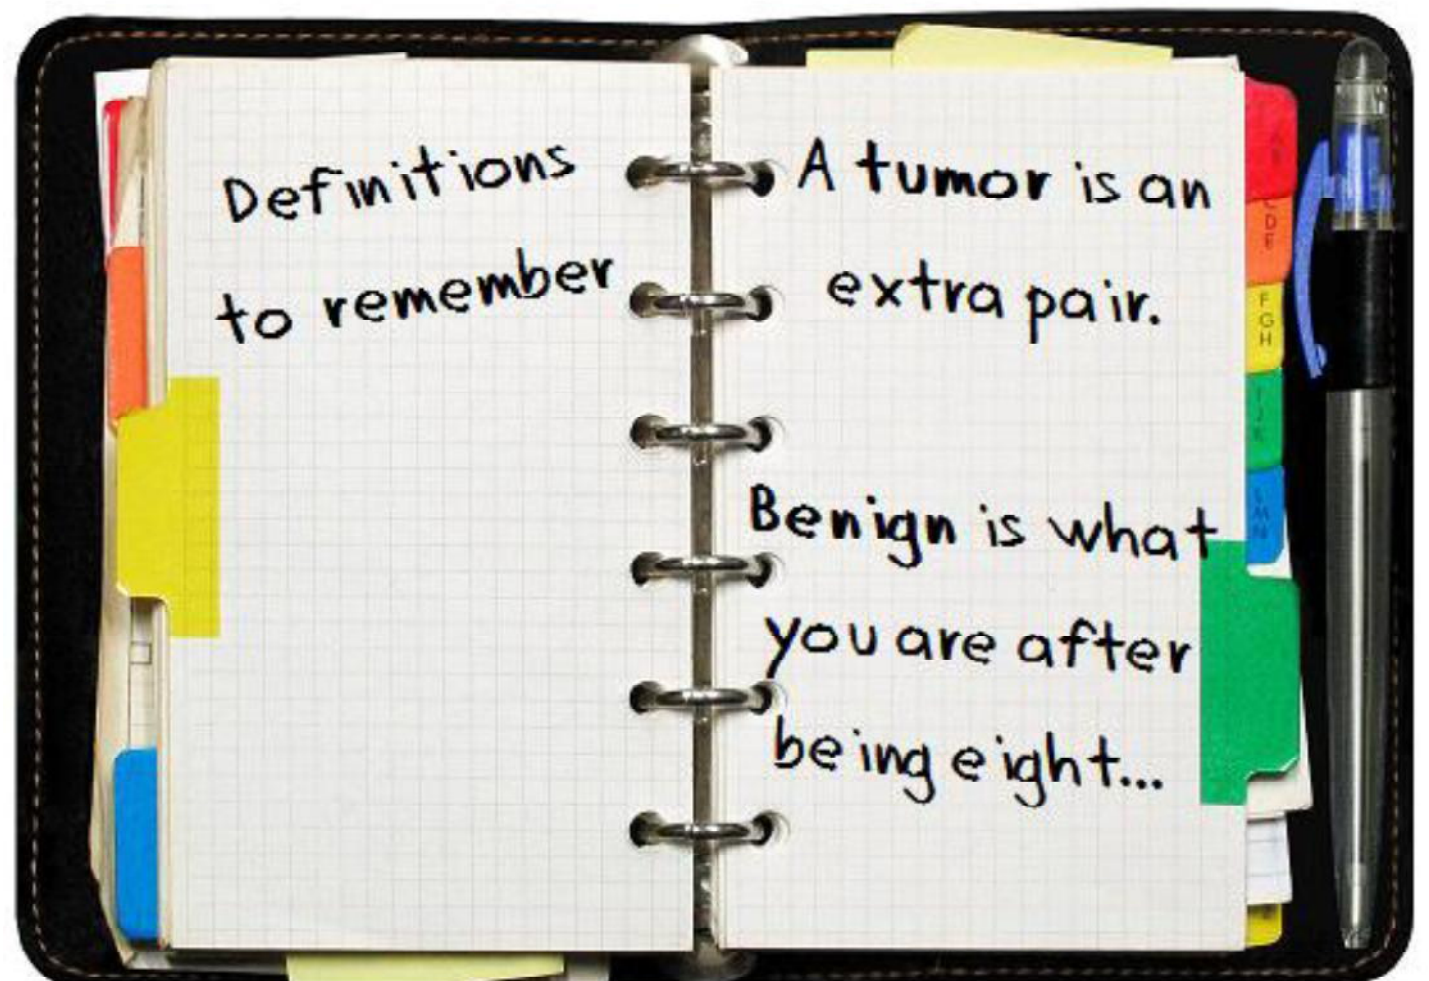 Definitions
to remember
A tumor is an
extra pair.
Benign is what
you are after
being eight...
CDE
FGH
IJK
LMN